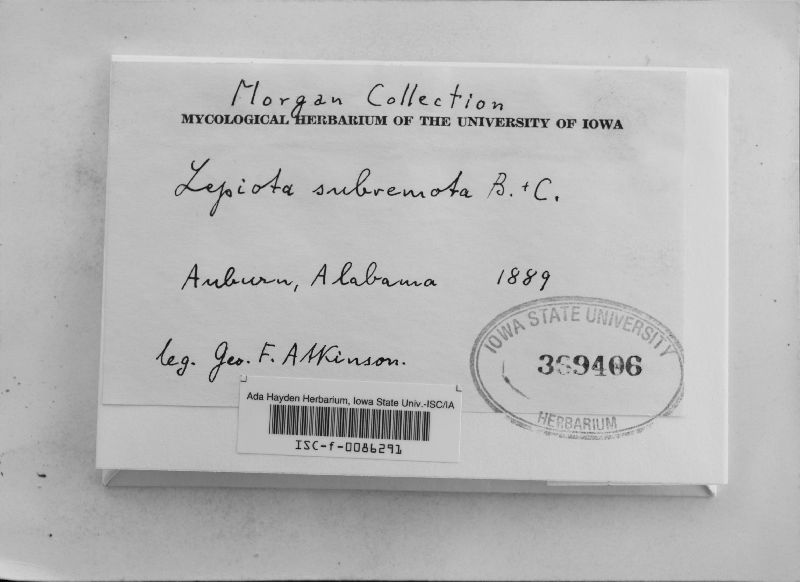 Morgan Collection
MYCOLOGICAL HERBARIUM OF THE UNIVERSITY OF IOWA
Lepiota subremota B. + C.
Auburn, Alabama 1889
leg. Geo. F. Atkinson.
IOWA STATE UNIVERSITY
389406
HERBARIUM
Ada Hayden Herbarium, Iowa State Univ.-ISC/IA
ISC-f-0086291